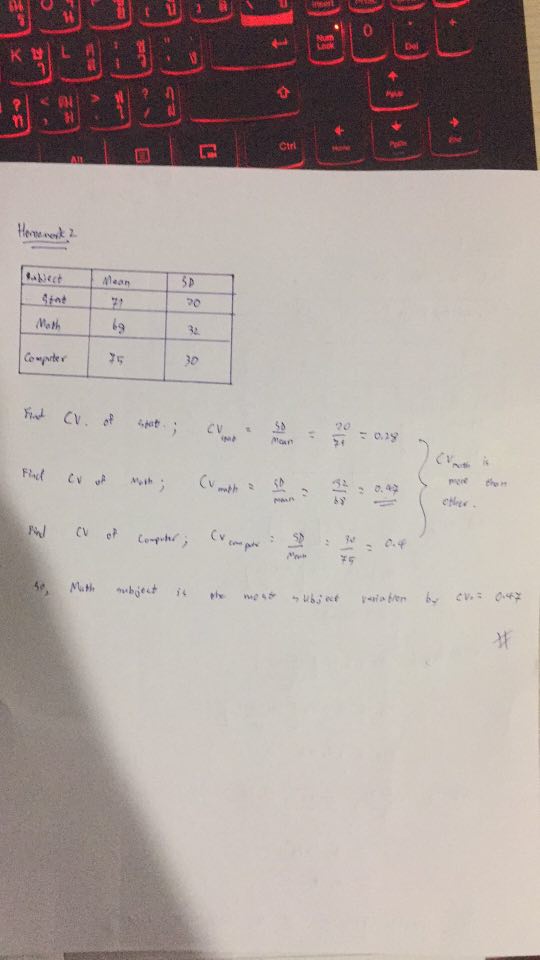 Insert
K
L
Num Lock
0
. Del
+
<
>
?
/
PgUp
Alt
Ctrl
Home
PgDn
End
Homework 2
Subject Mean SD
Stat 71 20
Math 68 32
Computer 75 30
Find CV. of Stat. ; CV stat = SD/Mean = 20/71 = 0.28
Find CV of Math; CV math = SD/mean = 32/68 = 0.47
Find CV of Computer; CV computer = SD/Mean = 30/75 = 0.4
CV math is
more than
other.
So, Math subject is the most subject variation by CV. = 0.47
#